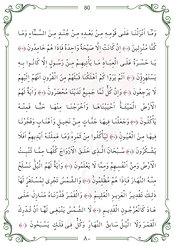 80
وَمَا أَنْزَلْنَا عَلَى قَوْمِهِ مِنْ بَعْدِهِ مِنْ جُنْدٍ مِنَ السَّمَاءِ وَمَا
كُنَّا مُنْزِلِينَ ﴿٢٨﴾ إِنْ كَانَتْ إِلَّا صَيْحَةً وَاحِدَةً فَإِذَا هُمْ خَامِدُونَ ﴿٢٩﴾
يَا حَسْرَةً عَلَى الْعِبَادِ مَا يَأْتِيهِمْ مِنْ رَسُولٍ إِلَّا كَانُوا بِهِ
يَسْتَهْزِئُونَ ﴿٣٠﴾ أَلَمْ يَرَوْا كَمْ أَهْلَكْنَا قَبْلَهُمْ مِنَ الْقُرُونِ أَنَّهُمْ إِلَيْهِمْ
لَا يَرْجِعُونَ ﴿٣١﴾ وَإِنْ كُلٌّ لَمَّا جَمِيعٌ لَدَيْنَا مُحْضَرُونَ ﴿٣٢﴾ وَآيَةٌ لَهُمُ
الْأَرْضُ الْمَيْتَةُ أَحْيَيْنَاهَا وَأَخْرَجْنَا مِنْهَا حَبًّا فَمِنْهُ
يَأْكُلُونَ ﴿٣٣﴾ وَجَعَلْنَا فِيهَا جَنَّاتٍ مِنْ نَخِيلٍ وَأَعْنَابٍ وَفَجَّرْنَا
فِيهَا مِنَ الْعُيُونِ ﴿٣٤﴾ لِيَأْكُلُوا مِنْ ثَمَرِهِ وَمَا عَمِلَتْهُ أَيْدِيهِمْ أَفَلَا
يَشْكُرُونَ ﴿٣٥﴾ سُبْحَانَ الَّذِي خَلَقَ الْأَزْوَاجَ كُلَّهَا مِمَّا تُنْبِتُ
الْأَرْضُ وَمِنْ أَنْفُسِهِمْ وَمِمَّا لَا يَعْلَمُونَ ﴿٣٦﴾ وَآيَةٌ لَهُمُ اللَّيْلُ نَسْلَخُ
مِنْهُ النَّهَارَ فَإِذَا هُمْ مُظْلِمُونَ ﴿٣٧﴾ وَالشَّمْسُ تَجْرِي لِمُسْتَقَرٍّ لَهَا
ذَلِكَ تَقْدِيرُ الْعَزِيزِ الْعَلِيمِ ﴿٣٨﴾ وَالْقَمَرَ قَدَّرْنَاهُ مَنَازِلَ حَتَّى
عَادَ كَالْعُرْجُونِ الْقَدِيمِ ﴿٣٩﴾ لَا الشَّمْسُ يَنْبَغِي لَهَا أَنْ تُدْرِكَ
الْقَمَرَ وَلَا اللَّيْلُ سَابِقُ النَّهَارِ وَكُلٌّ فِي فَلَكٍ يَسْبَحُونَ ﴿٤٠﴾
٨٠